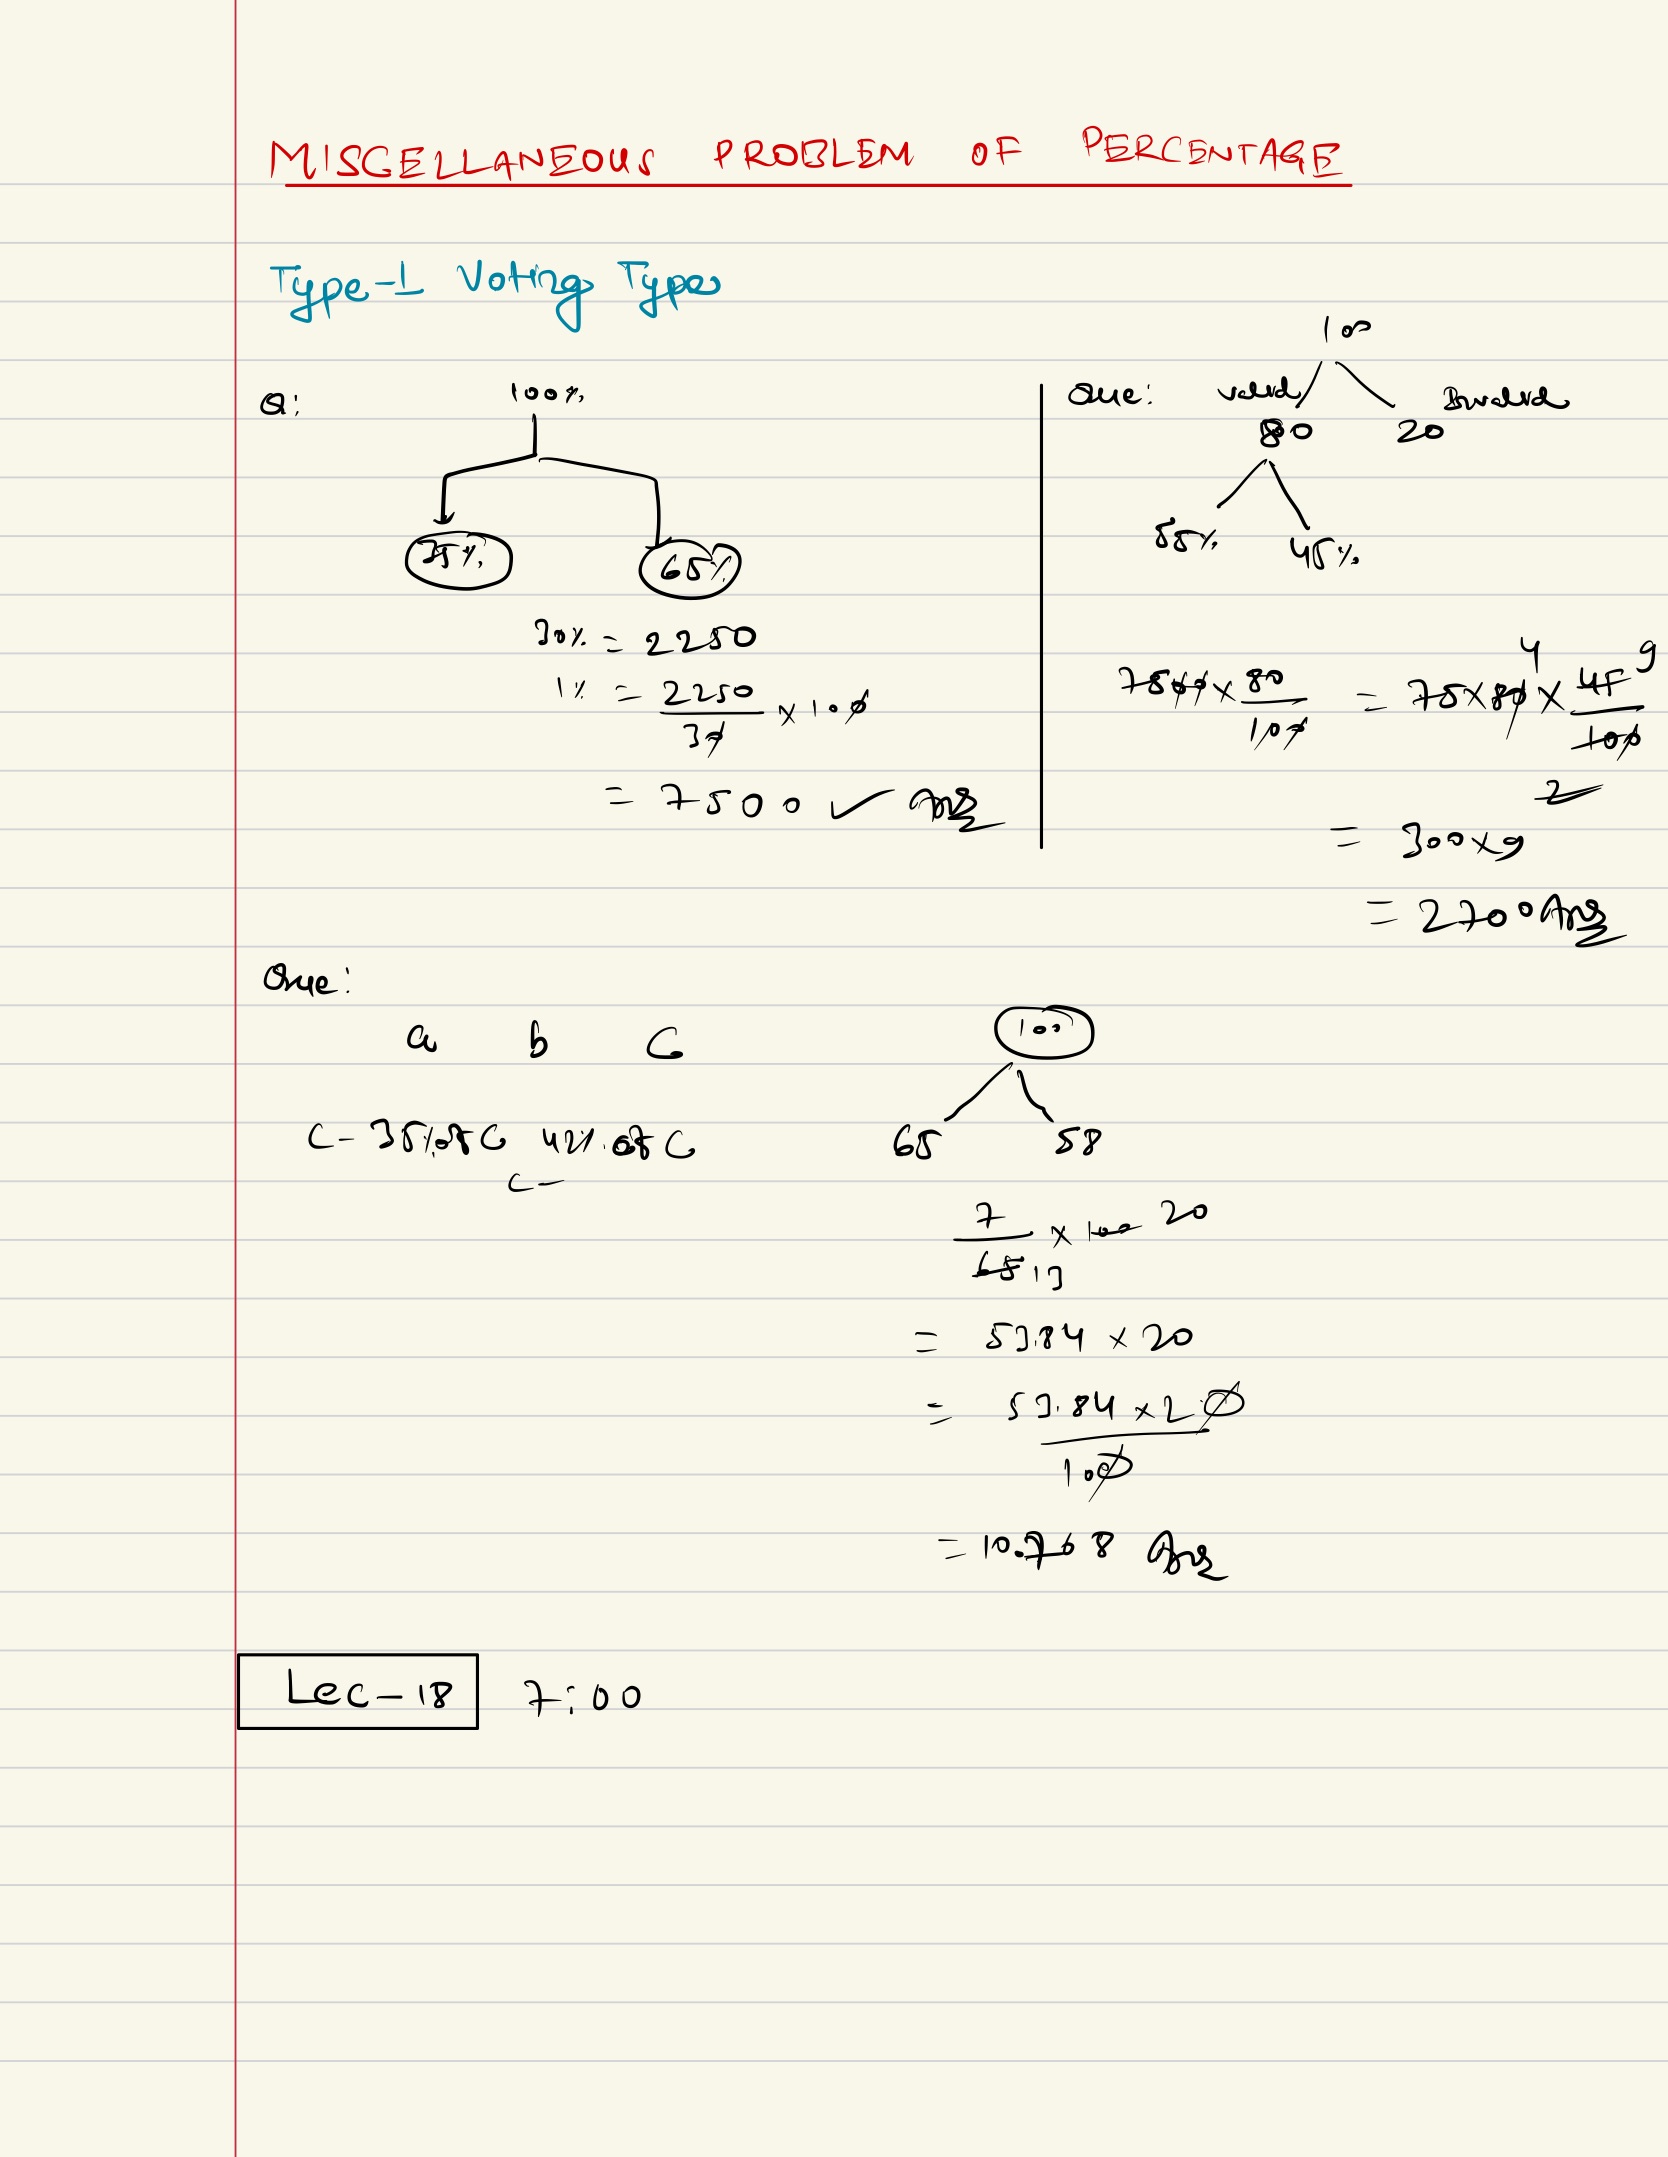 MISCELLANEOUS PROBLEM OF PERCENTAGE
Type-1 Voting Type
Q:
100%
35% 65%
30% = 2250
1% = 2250/30 × 100
= 7500 ✓ Ans
Que:
100
valid Invalid
80 20
55% 45%
7500 × 80/100 = 75×80 × 45/100
4 9
2
= 300×9
= 2700 Ans
Que:
a b C
C - 35% of C 42% of C
C -
100
65 58
7/65 × 100 20
13
= 53.84 × 20
= 53.84 × 20/100
= 10.768 Ans
Lec-18 7:00